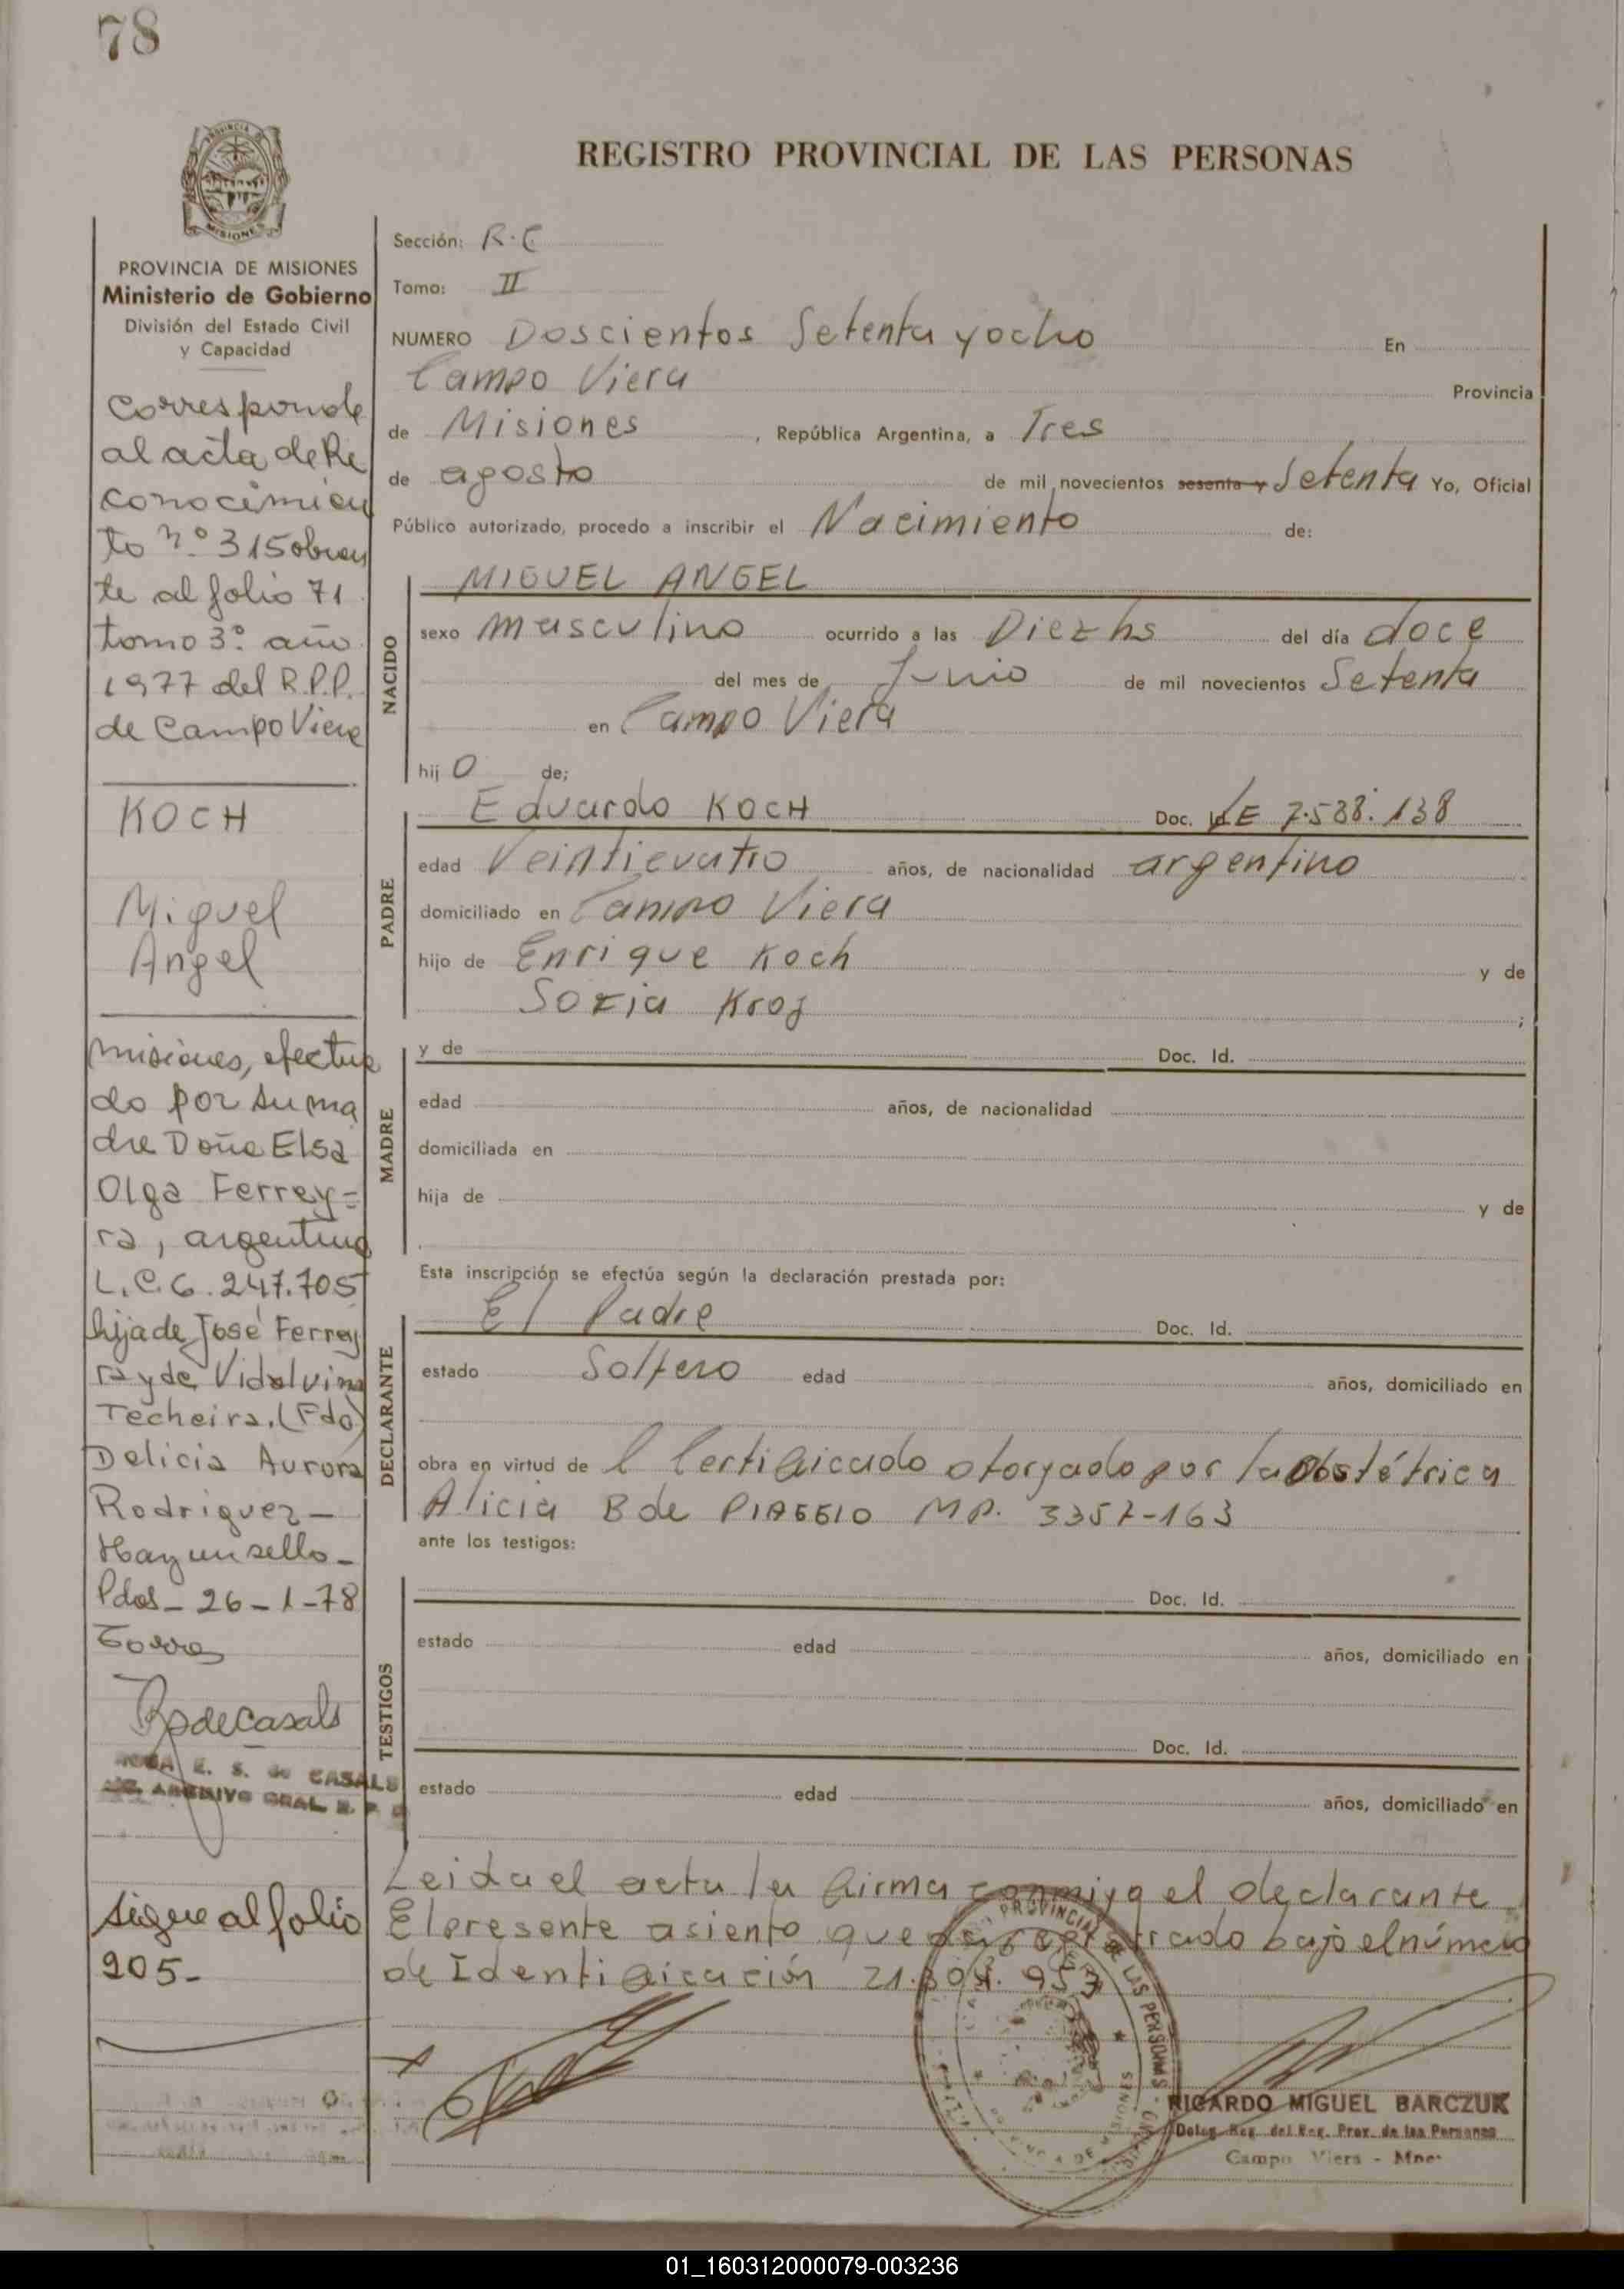 78
REGISTRO PROVINCIAL DE LAS PERSONAS
PROVINCIA DE MISIONES
Ministerio de Gobierno
División del Estado Civil
y Capacidad
Corresponde
al acta de Re
conocimien
to n.º 315 obran
te al folio 71
tomo 3º año
1977 del R.P.P.
de Campo Viera
KOCH
Miguel
Angel
misiones, efectua
do por su ma
dre Doña Elsa
Olga Ferrey=
ra, argentina
L.C. 6.247.705
hija de José Ferrey
ra y de Vidalvina
Techeira. (Fdo)
Delicia Aurora
Rodriguez -
Hay un sello -
Pdas - 26 - 1 - 78
Torres
RpdeCasals
ROSA E. S. de CASALS
ARCHIVO GRAL. R. P. P.
sigue al folio
205-
Sección: R.C
Tomo: II
NUMERO Doscientos Setenta y ocho En
Campo Viera Provincia
de Misiones , República Argentina, a Tres
de agosto de mil novecientos sesenta y Setenta Yo, Oficial
Público autorizado, procedo a inscribir el Nacimiento de:
NACIDO
MIGUEL ANGEL
sexo masculino ocurrido a las Diez hs del día doce
del mes de Junio de mil novecientos Setenta
en Campo Viera
hij o de;
PADRE
Eduardo KOCH Doc. Id. LE 7.538.138
edad Veinticuatro años, de nacionalidad argentino
domiciliado en Campo Viera
hijo de Enrique Koch y de
Sozia ;
MADRE
y de Doc. Id.
edad años, de nacionalidad
domiciliada en
hija de y de
Esta inscripción se efectúa según la declaración prestada por:
DECLARANTE
El Padre Doc. Id.
estado Soltero edad años, domiciliado en
obra en virtud de l Certificado otorgado por la obstétrica
Alicia B de PIAGGIO MP. 3357-163
ante los testigos:
TESTIGOS
Doc. Id.
estado edad años, domiciliado en
Doc. Id.
estado edad años, domiciliado en
Leida el acta la firma conmigo el declarante
El presente asiento queda registrado bajo el número
de Identificación 21.
RICARDO MIGUEL BARCZUK
Deleg. Reg. del Reg. Prov. de las Personas
Campo Viera - Mnes
01_160312000079-003236